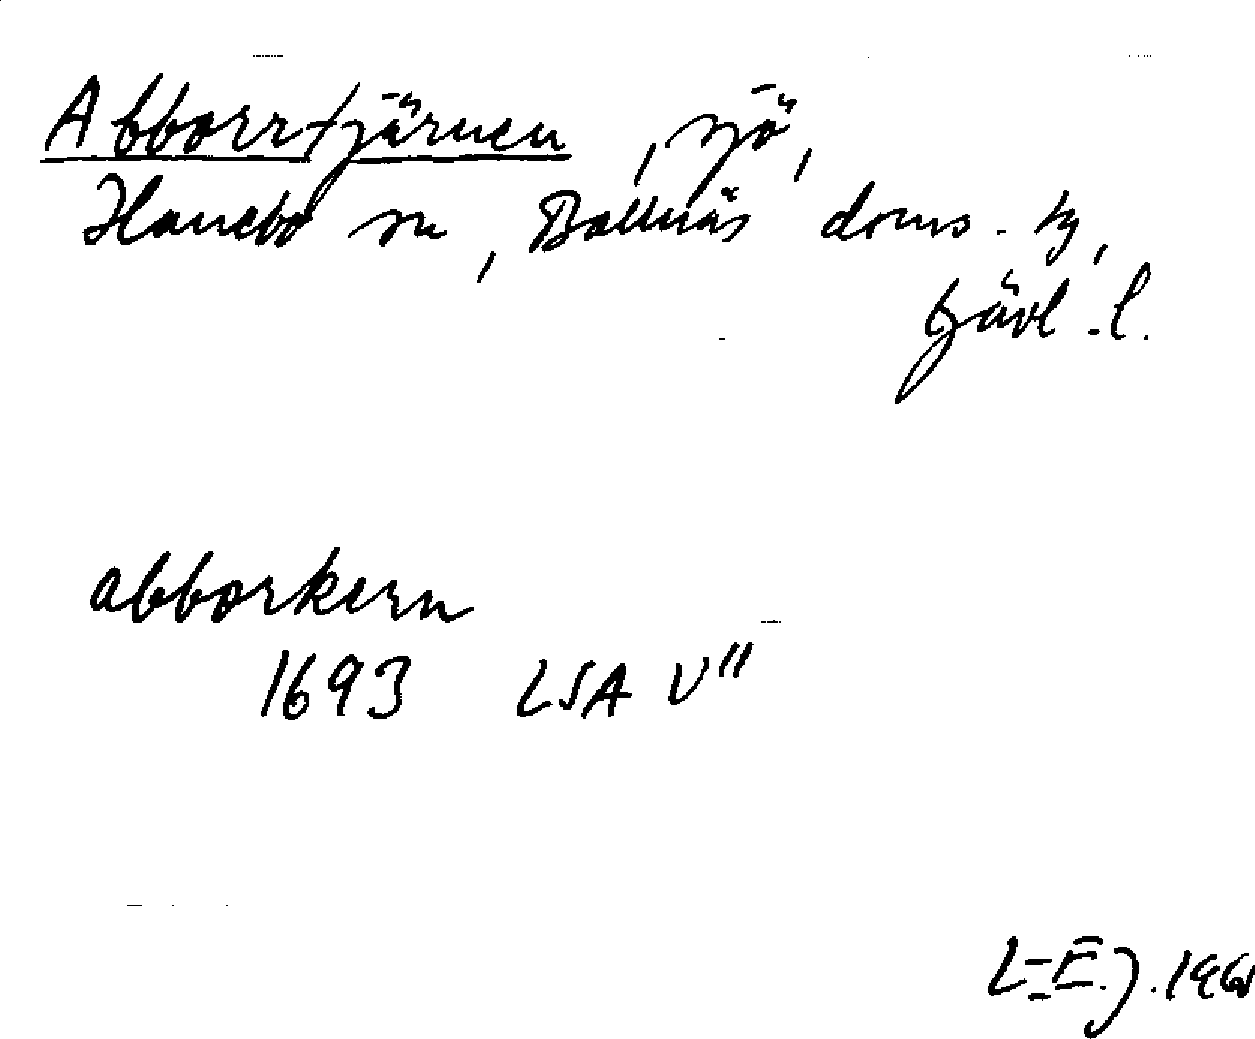 Abborrtjärnen, sjö,
Hanebo sn, Bollnäs doms. tg,
Gävl. l.
abborkern
1693 LSA V"
L-E.J. 196